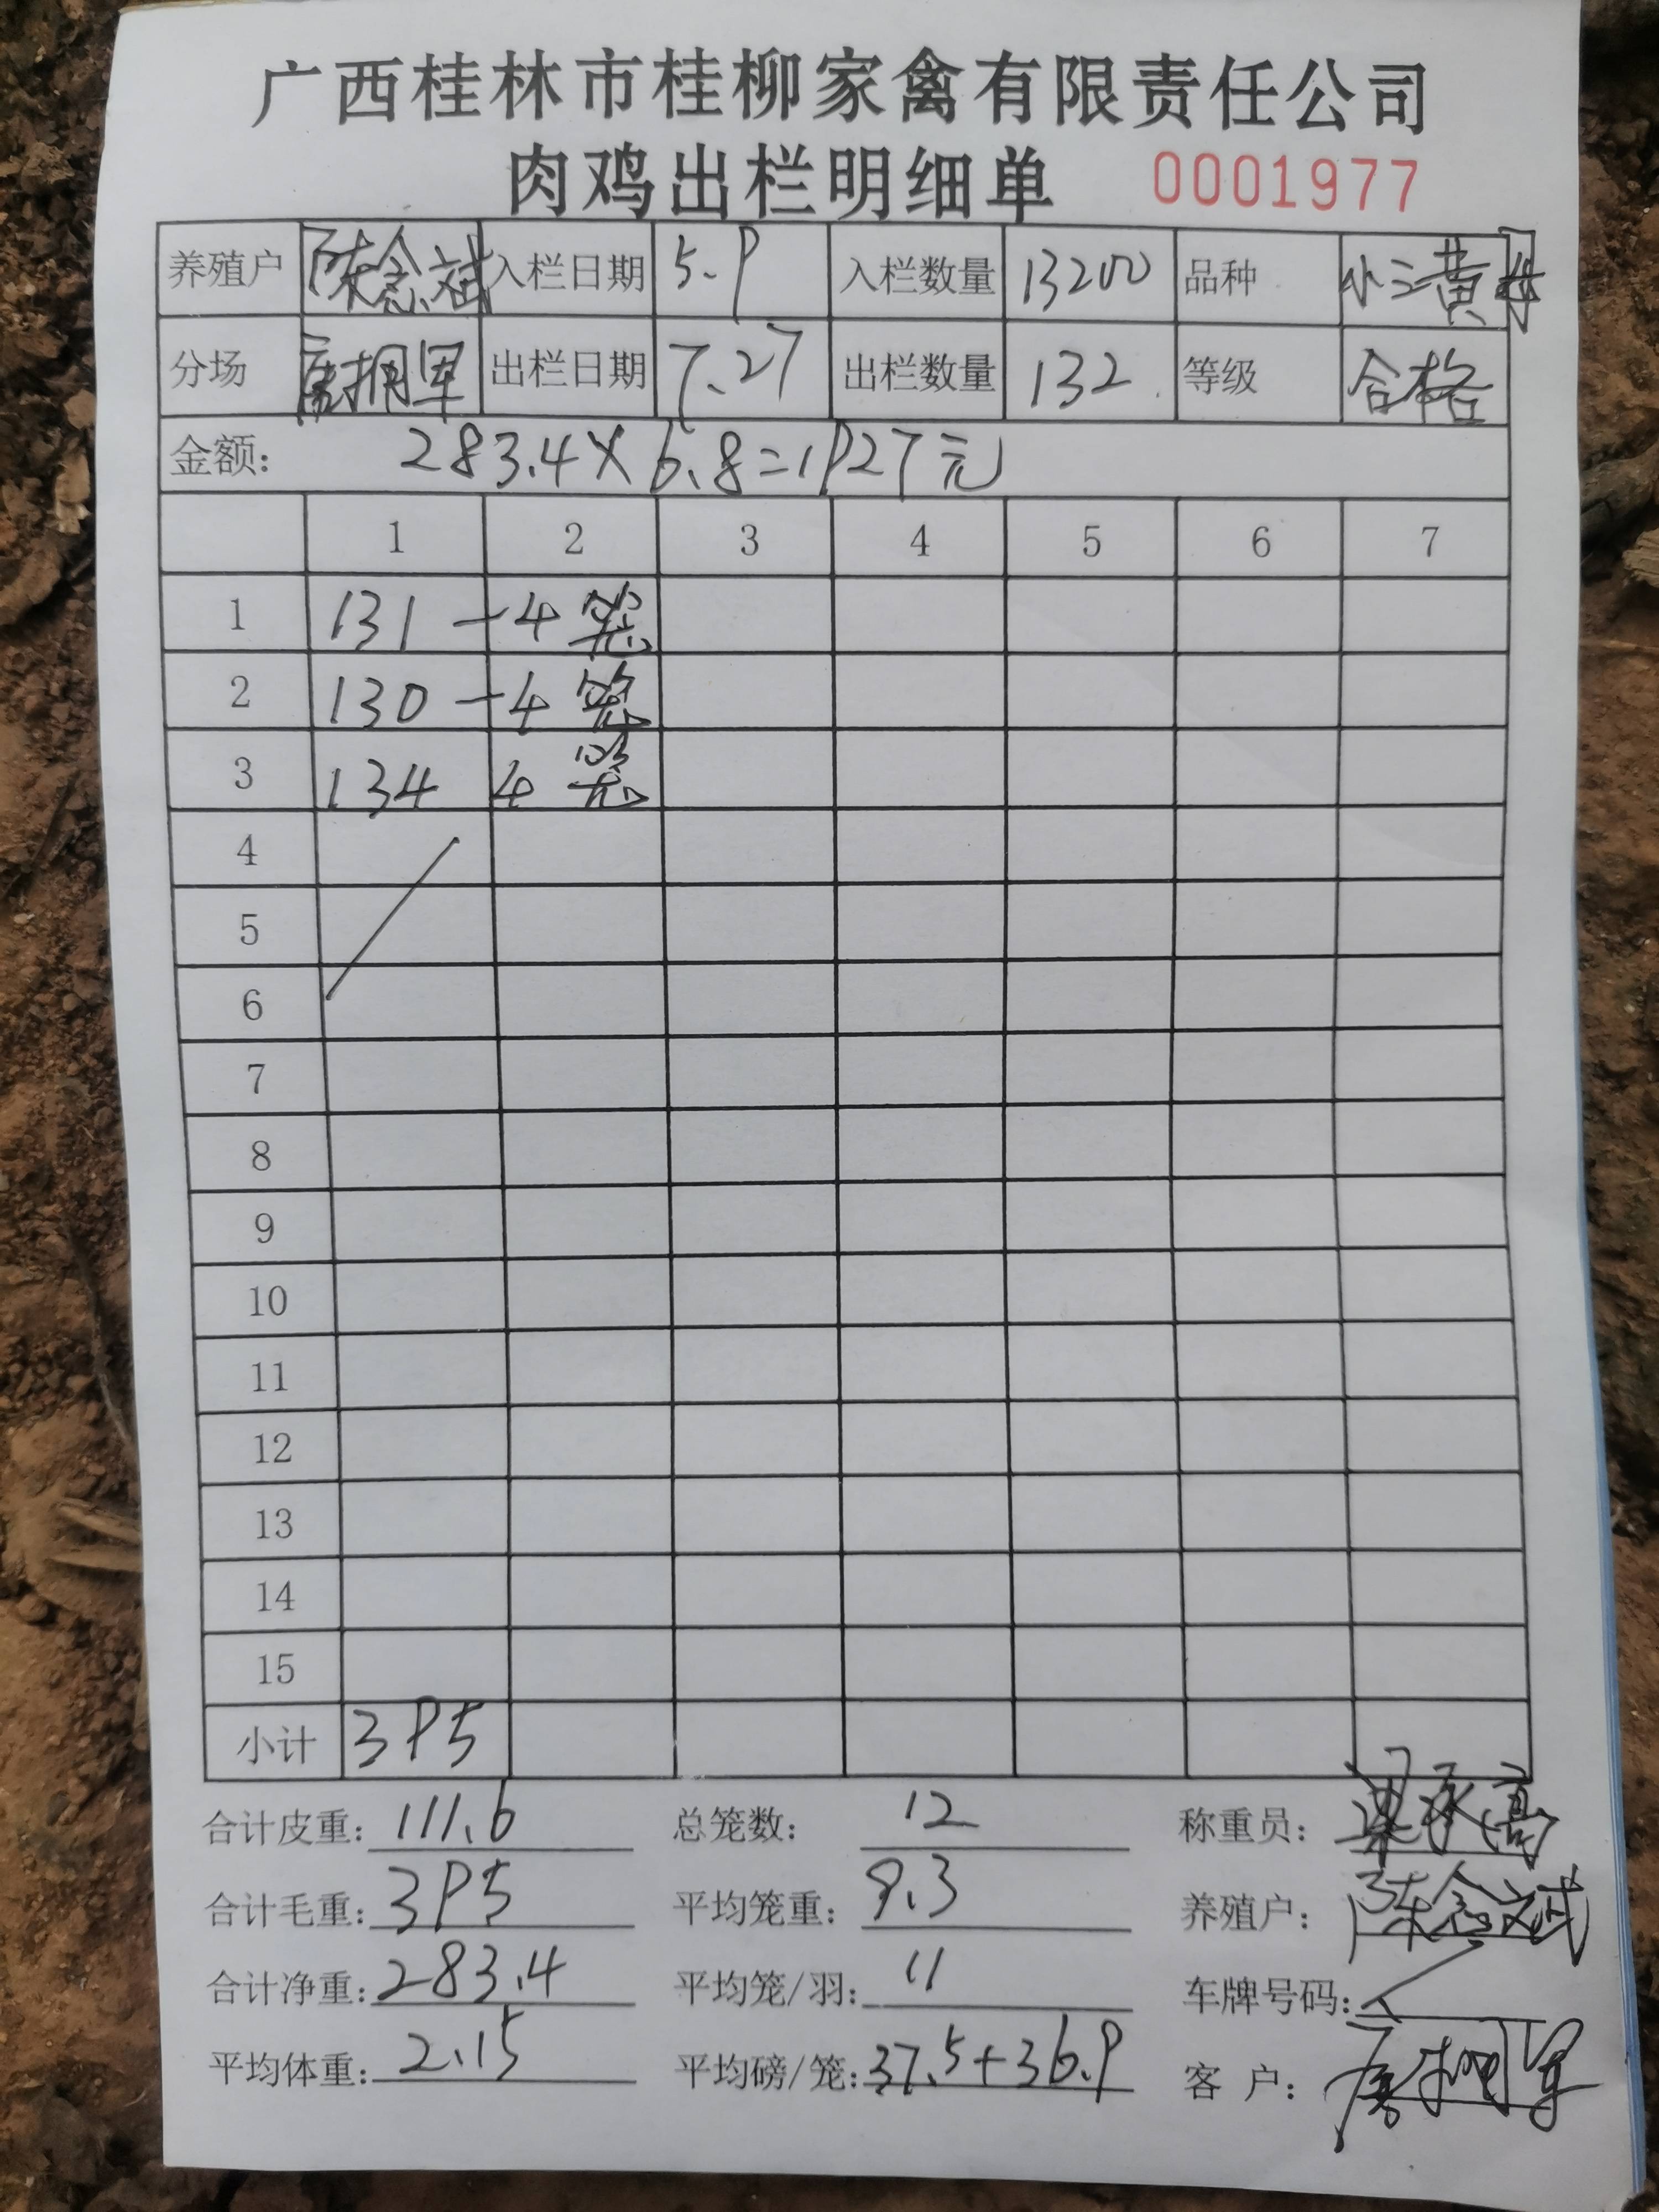 广西桂林市桂柳家禽有限责任公司
肉鸡出栏明细单 0001977
养殖户 陈念斌 入栏日期 5.9 入栏数量 13200 品种 小三黄母
分场 唐拥军 出栏日期 7.27 出栏数量 132 等级 合格
金额: 283.4×6.8=1927元
1 2 3 4 5 6 7
1 131-4笼
2 130-4笼
3 134 4笼
4
5
6
7
8
9
10
11
12
13
14
15
小计 395
合计皮重: 111.6 总笼数: 12 称重员: 梁承高
合计毛重: 395 平均笼重: 9.3 养殖户: 陈念斌
合计净重: 283.4 平均笼/羽: 11 车牌号码:
平均体重: 2.15 平均磅/笼: 37.5+36.9 客户: 唐拥军